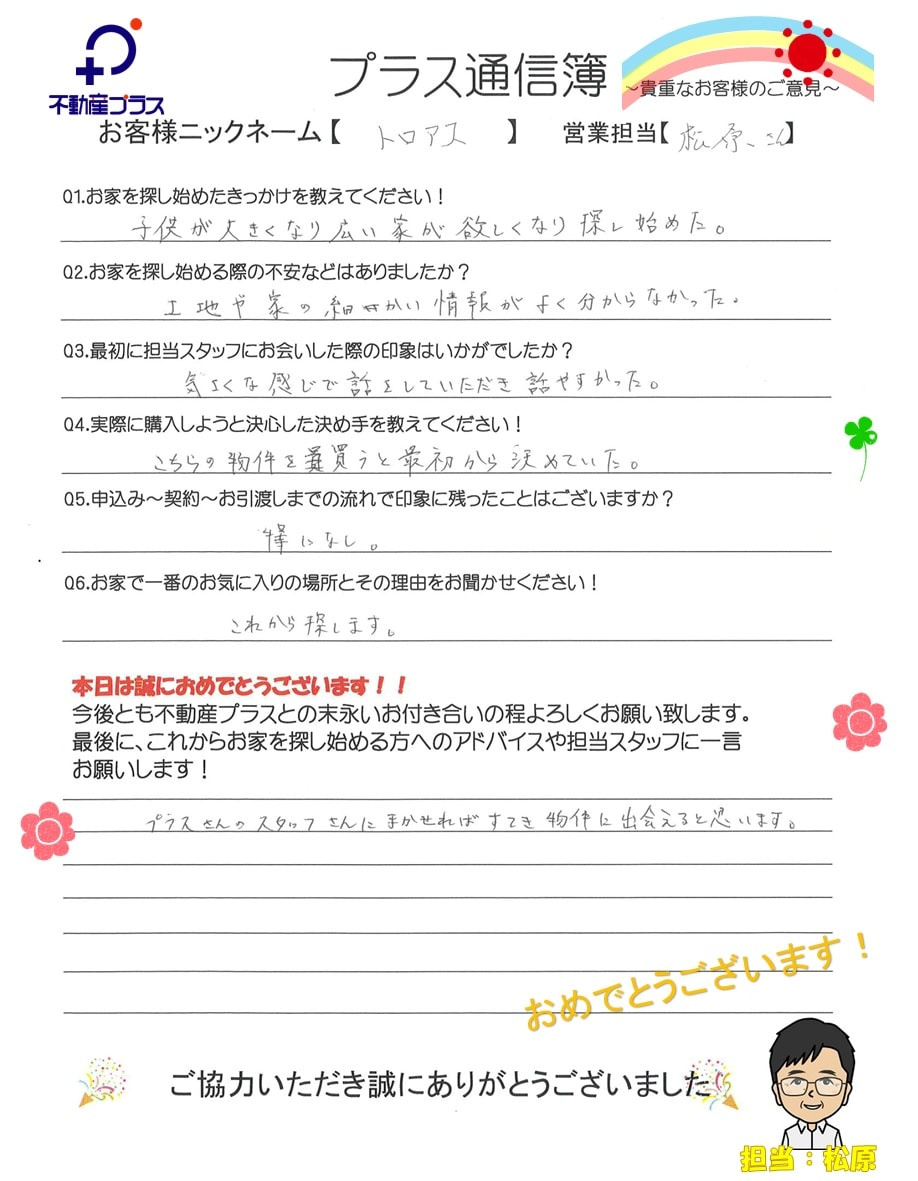 不動産プラス
プラス通信簿 ～貴重なお客様のご意見～
お客様ニックネーム【 トロアス 】 営業担当【 松原さん 】
Q1.お家を探し始めたきっかけを教えてください！
子供が大きくなり広い家が欲しくなり探し始めた。
Q2.お家を探し始める際の不安などはありましたか？
土地や家の細かい情報がよく分からなかった。
Q3.最初に担当スタッフにお会いした際の印象はいかがでしたか？
気さくな感じで話をしていただき話やすかった。
Q4.実際に購入しようと決心した決め手を教えてください！
こちらの物件を買うと最初から決めていた。
Q5.申込み～契約～お引渡しまでの流れで印象に残ったことはございますか？
特になし。
Q6.お家で一番のお気に入りの場所とその理由をお聞かせください！
これから探します。
本日は誠におめでとうございます！！
今後とも不動産プラスとの末永いお付き合いの程よろしくお願い致します。
最後に、これからお家を探し始める方へのアドバイスや担当スタッフに一言
お願いします！
プラスさんのスタッフさんにまかせればすてき物件に出会えると思います。
おめでとうございます！
ご協力いただき誠にありがとうございました
担当：松原